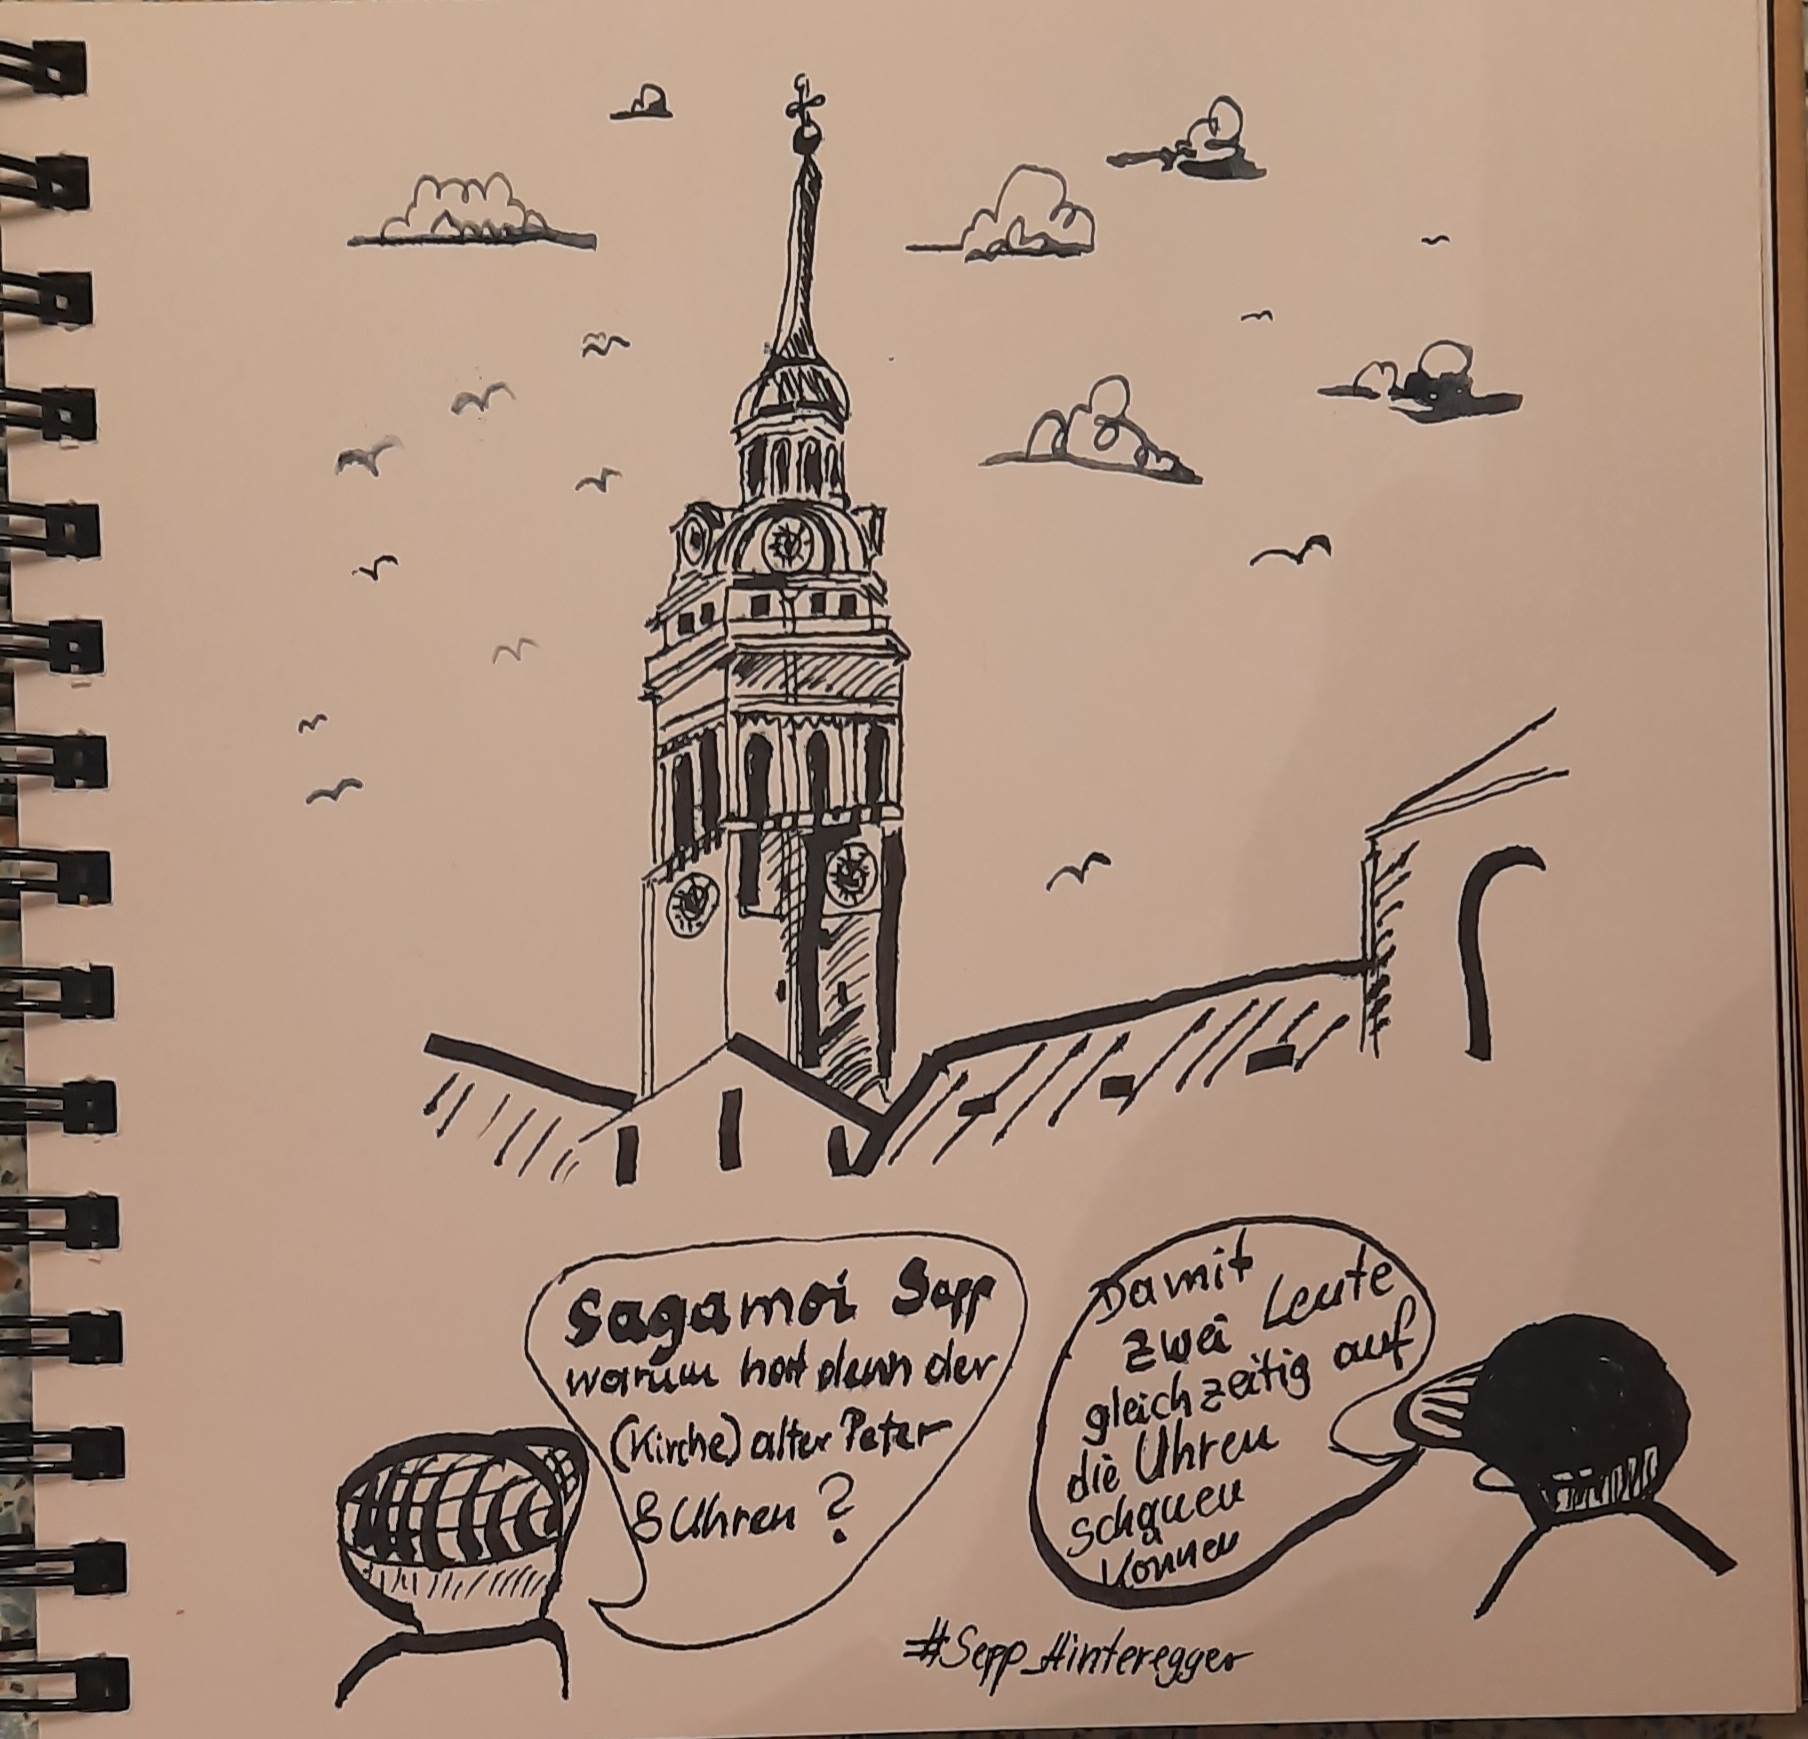 sagamoi Sepp
warum hat denn der
(Kirche) alter Peter
8 Uhren?
Damit
zwei Leute
gleichzeitig auf
die Uhren
schauen
können
#Sepp_Hinteregger